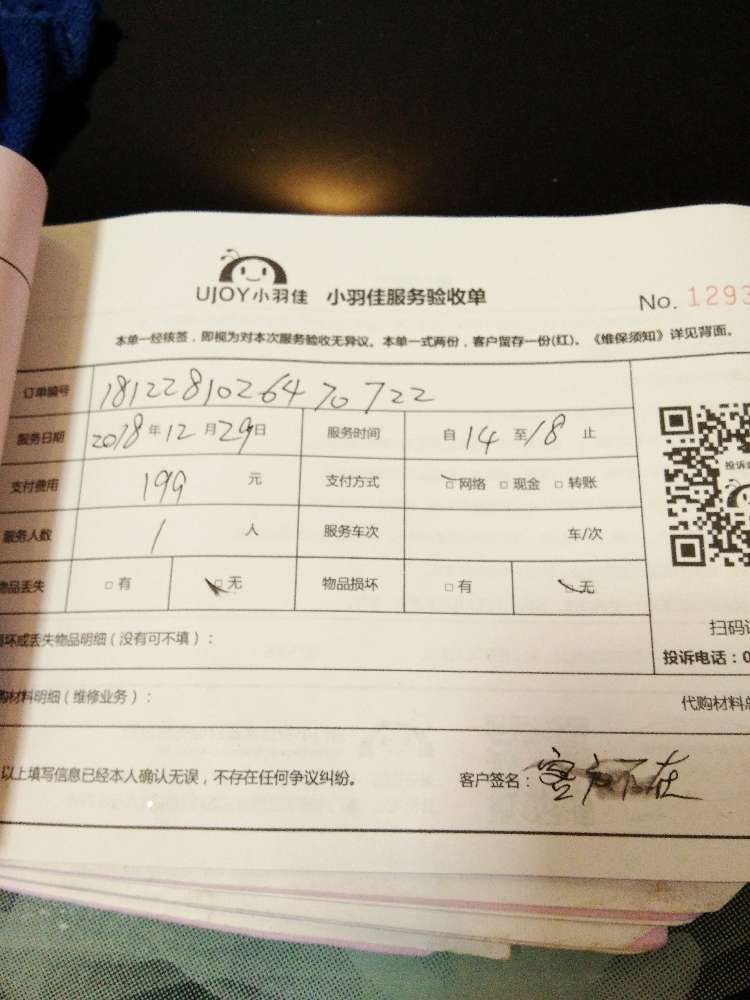 UJOY小羽佳 小羽佳服务验收单
No. 1293
本单一经核签，即视为对本次服务验收无异议。本单一式两份，客户留存一份(红)。《维保须知》详见背面。
订单编号 1812281026470722
服务日期 2018年12月29日 服务时间 自14至18止
支付费用 199 元 支付方式 □网络 □现金 □转账
服务人数 1 人 服务车次 车/次
物品丢失 □有 □无 物品损坏 □有 □无
投诉
坏或丢失物品明细（没有可不填）：
扫码
投诉电话：0
购材料明细（维修业务）： 代购材料总
以上填写信息已经本人确认无误，不存在任何争议纠纷。 客户签名：客户不在